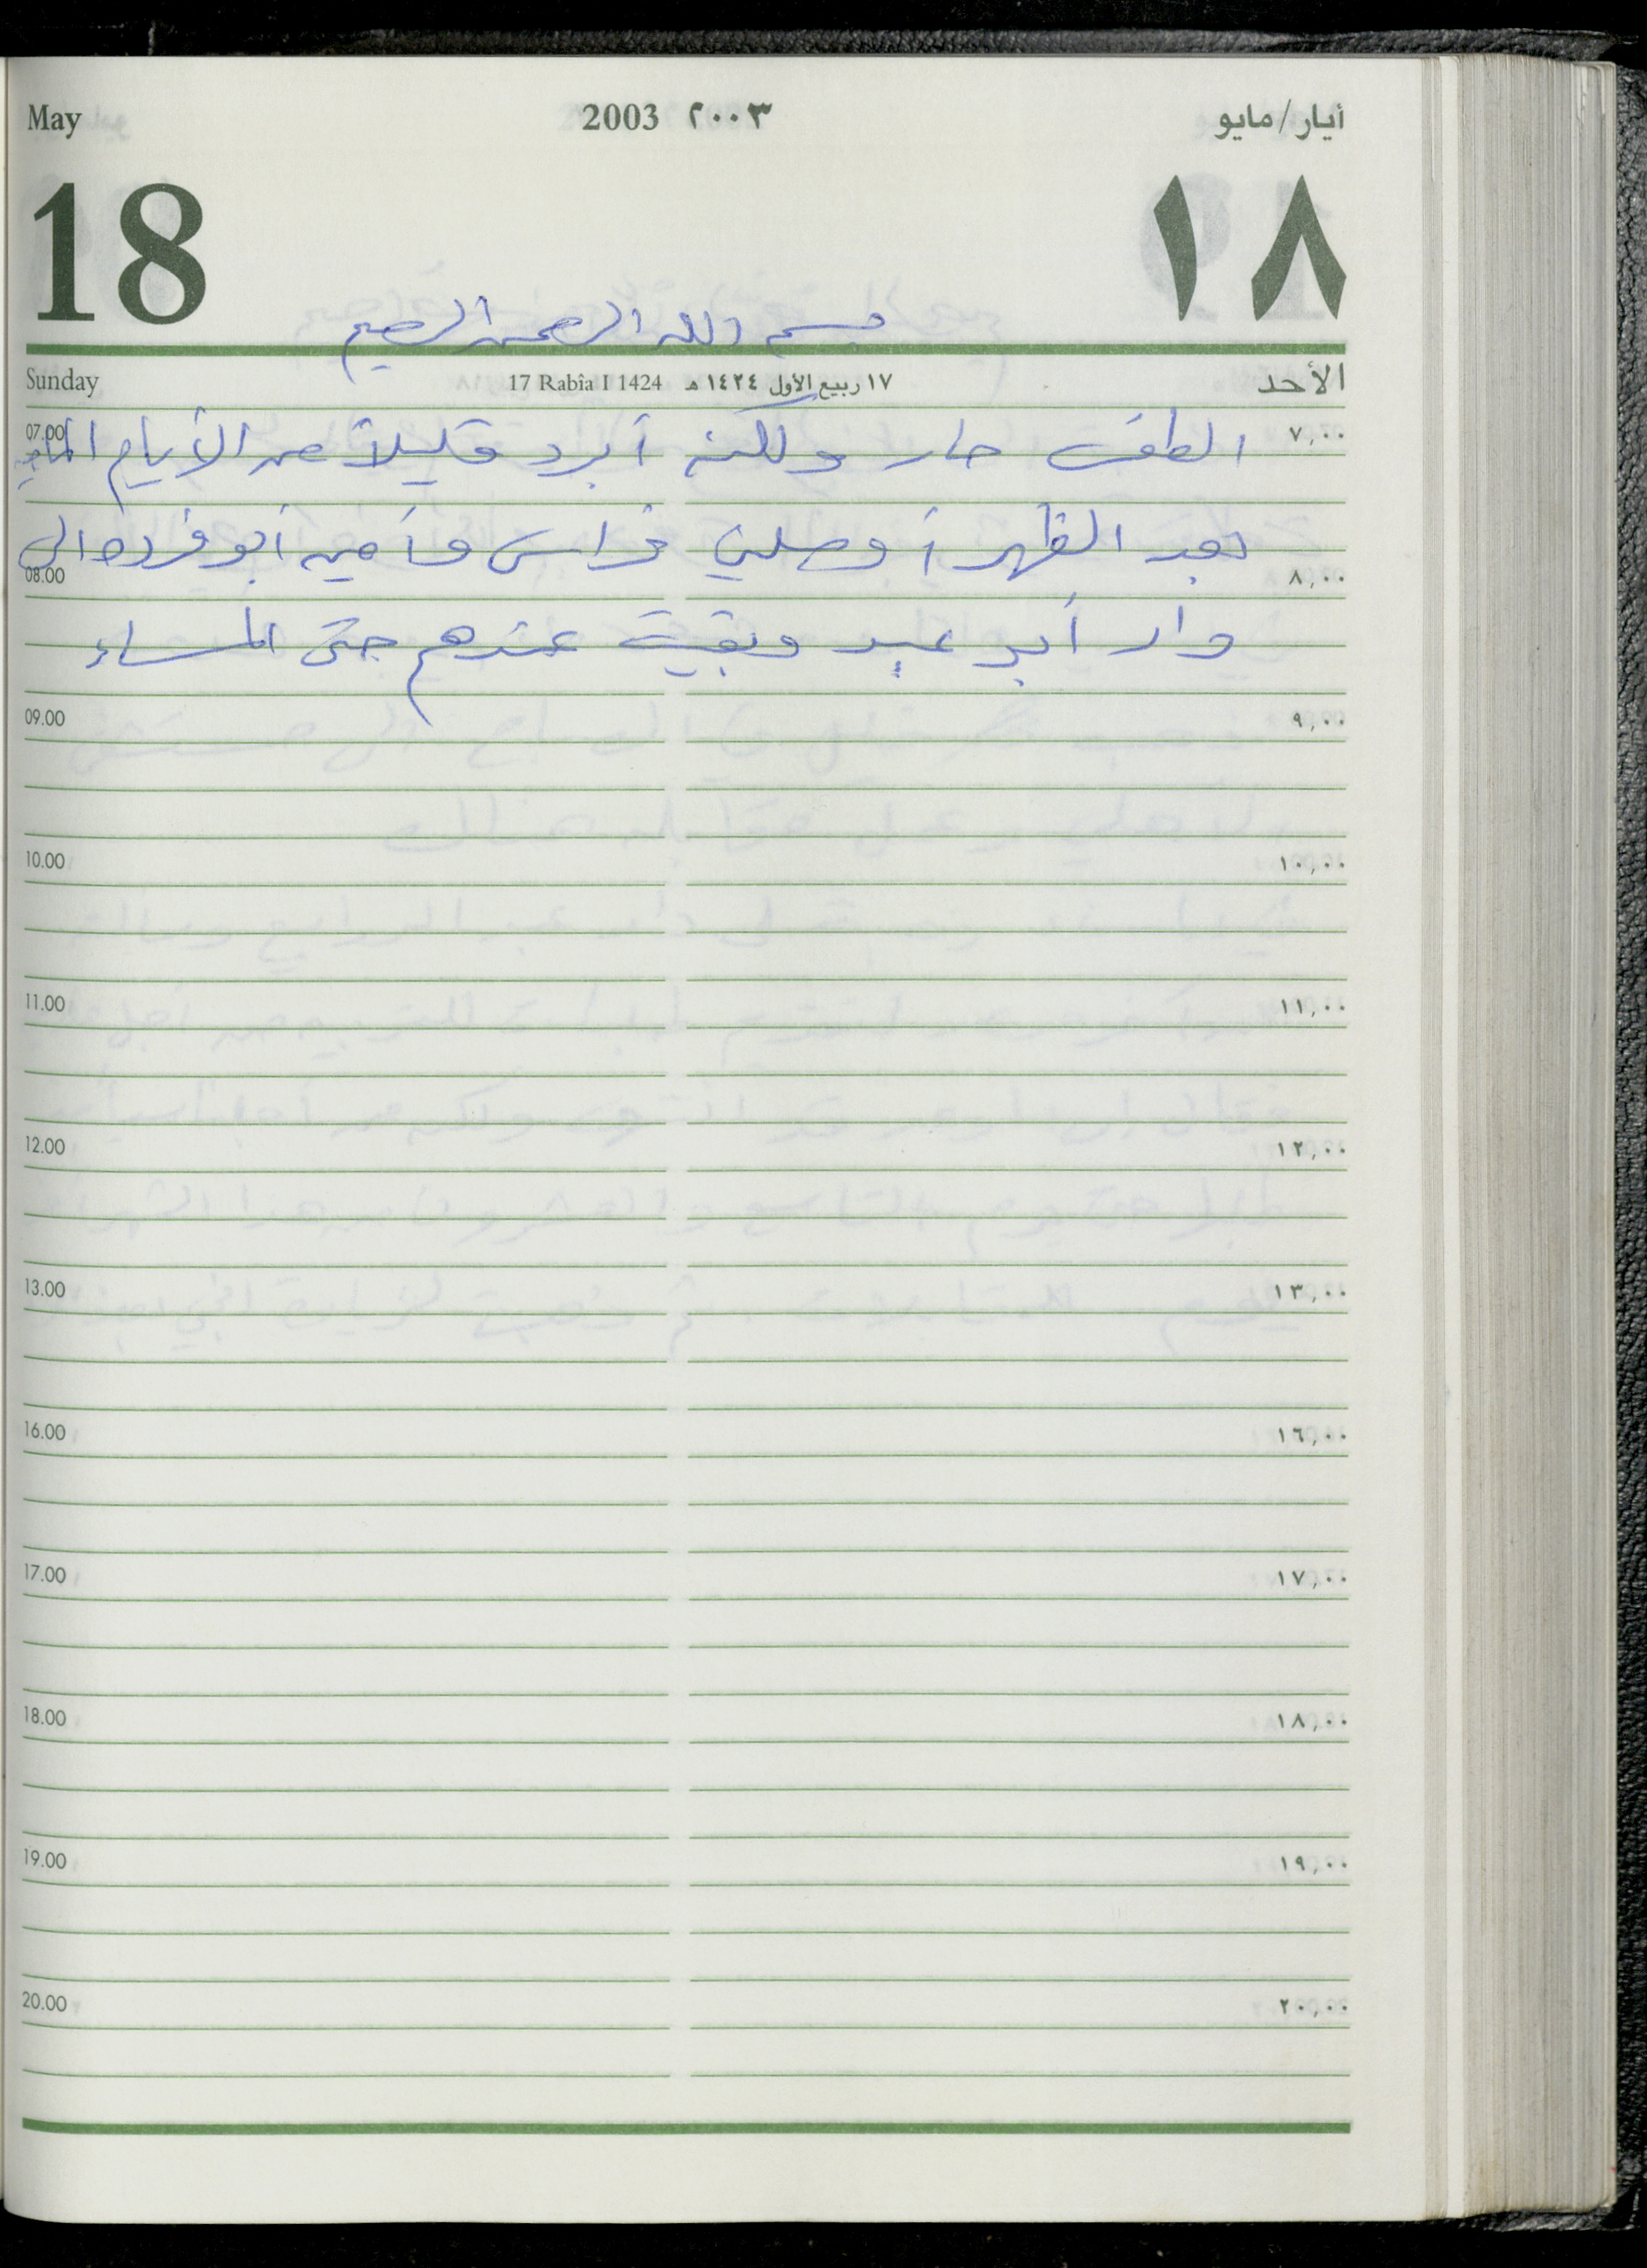 May 2003 ٢٠٠٣ أيار/مايو
18 ١٨
بسم الله الرحمن الرحيم
Sunday 17 Rabîa I 1424 ١٧ ربيع الأول ١٤٢٤ هـ الأحد
07.00 ٧,٠٠
الطقس حار ولكنه أبرد قليلاً من الأيام الماضية
بعد الظهر أوصلني فراس وأمين أبو فرده الى
08.00 ٨,٠٠
دار أبو عبد وبقيت عندهم حتى المساء
09.00 ٩,٠٠
10.00 ١٠,٠٠
11.00 ١١,٠٠
12.00 ١٢,٠٠
13.00 ١٣,٠٠
16.00 ١٦,٠٠
17.00 ١٧,٠٠
18.00 ١٨,٠٠
19.00 ١٩,٠٠
20.00 ٢٠,٠٠